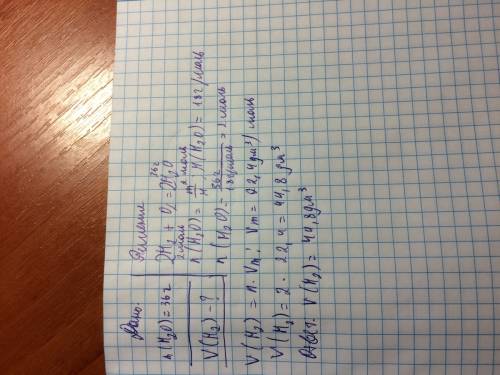 Дано:
n(H₂O)=36г
V(H₂) - ?
Решение
36г
2H₂ + O₂ = 2H₂O
2 моль 2 моль
n(H₂O) = m/M M(H₂O) = 18г/моль
n(H₂O) = 36г/18г/моль = 2 моль
V(H₂) = n · Vm; Vm = 22,4дм³/моль
V(H₂) = 2 · 22,4 = 44,8 дм³
Ответ. V(H₂) = 44,8дм³